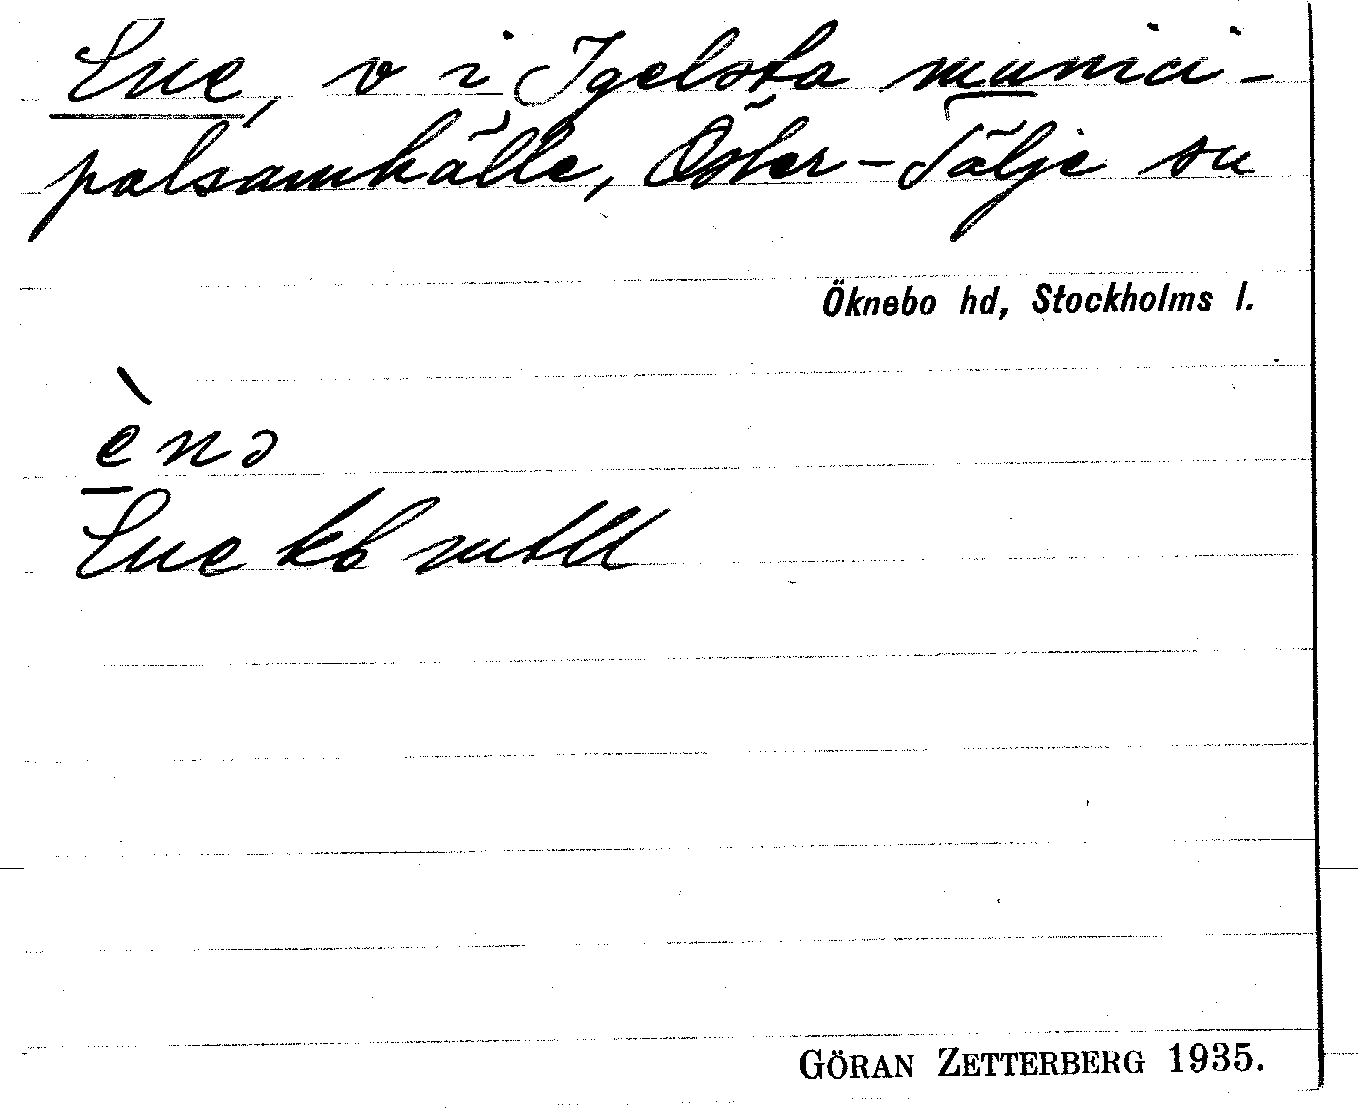 Ene, v i Igelsta munici-
palsamhälle, Öster-Tälje sn
Öknebo hd, Stockholms l.
ènə
Ene kb
GÖRAN ZETTERBERG 1935.